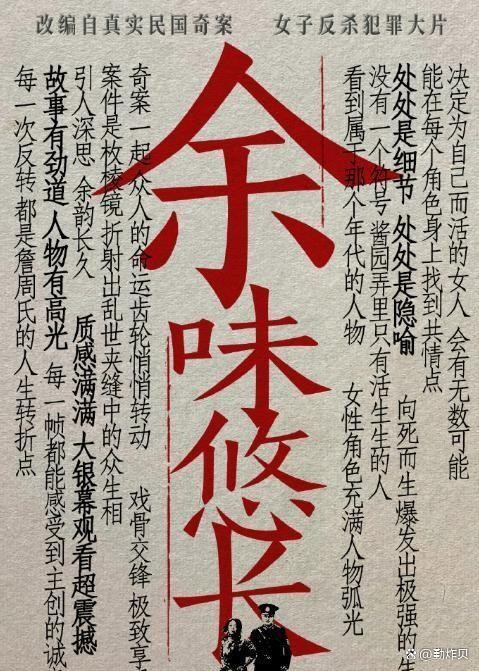 改编自真实民国奇案 女子反杀犯罪大片
决定为自己而活的女人 会有无数可能
能在每个角色身上找到共情点
处处是细节 处处是隐喻 向死而生爆发出极强的
没有一个符号 酱园弄里只有活生生的人
看到属于那个年代的人物 女性角色充满人物弧光
余味悠长
奇案一起 众人的命运齿轮悄悄转动 戏骨交锋 极致享
案件是枚棱镜 折射出乱世夹缝中的众生相
引人深思 余韵长久 质感满满 大银幕观看超震撼
故事有劲道 人物有高光 每一帧都能感受到主创的诚
每一次反转 都是詹周氏的人生转折点
@勤炸贝